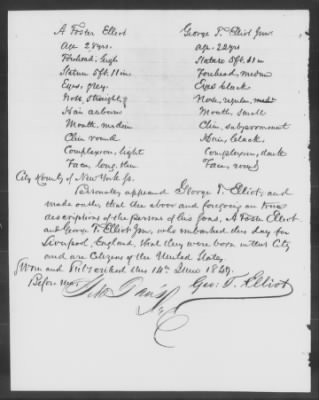 A Foster Elliot
Age 28 yrs.
Forehead, high
Stature 5 ft. 11 in
Eyes, grey.
Nose, straight,
Hair auburn
Mouth, medium
Chin round
Complexion, light
Face, long, thin
George T. Elliot Junr.
age. 22 yrs
Stature 5 ft.
Forehead, medium
Eyes black
Nose, regular,
Mouth, small
Chin,
Hair, black
Complexion, dark
Face, round
City & County of New York ss.
Personally appeared George T. Elliot, and
made oath, that the above and foregoing are true
descriptions of the persons of his sons, A Foster Elliot
and George T. Elliot Junr, who embarked this day for
Liverpool, England, that they were born in this City
and are Citizens of the United States.
Sworn and Subscribed this 14th June 1849.
Before me.
Geo: T. Elliot